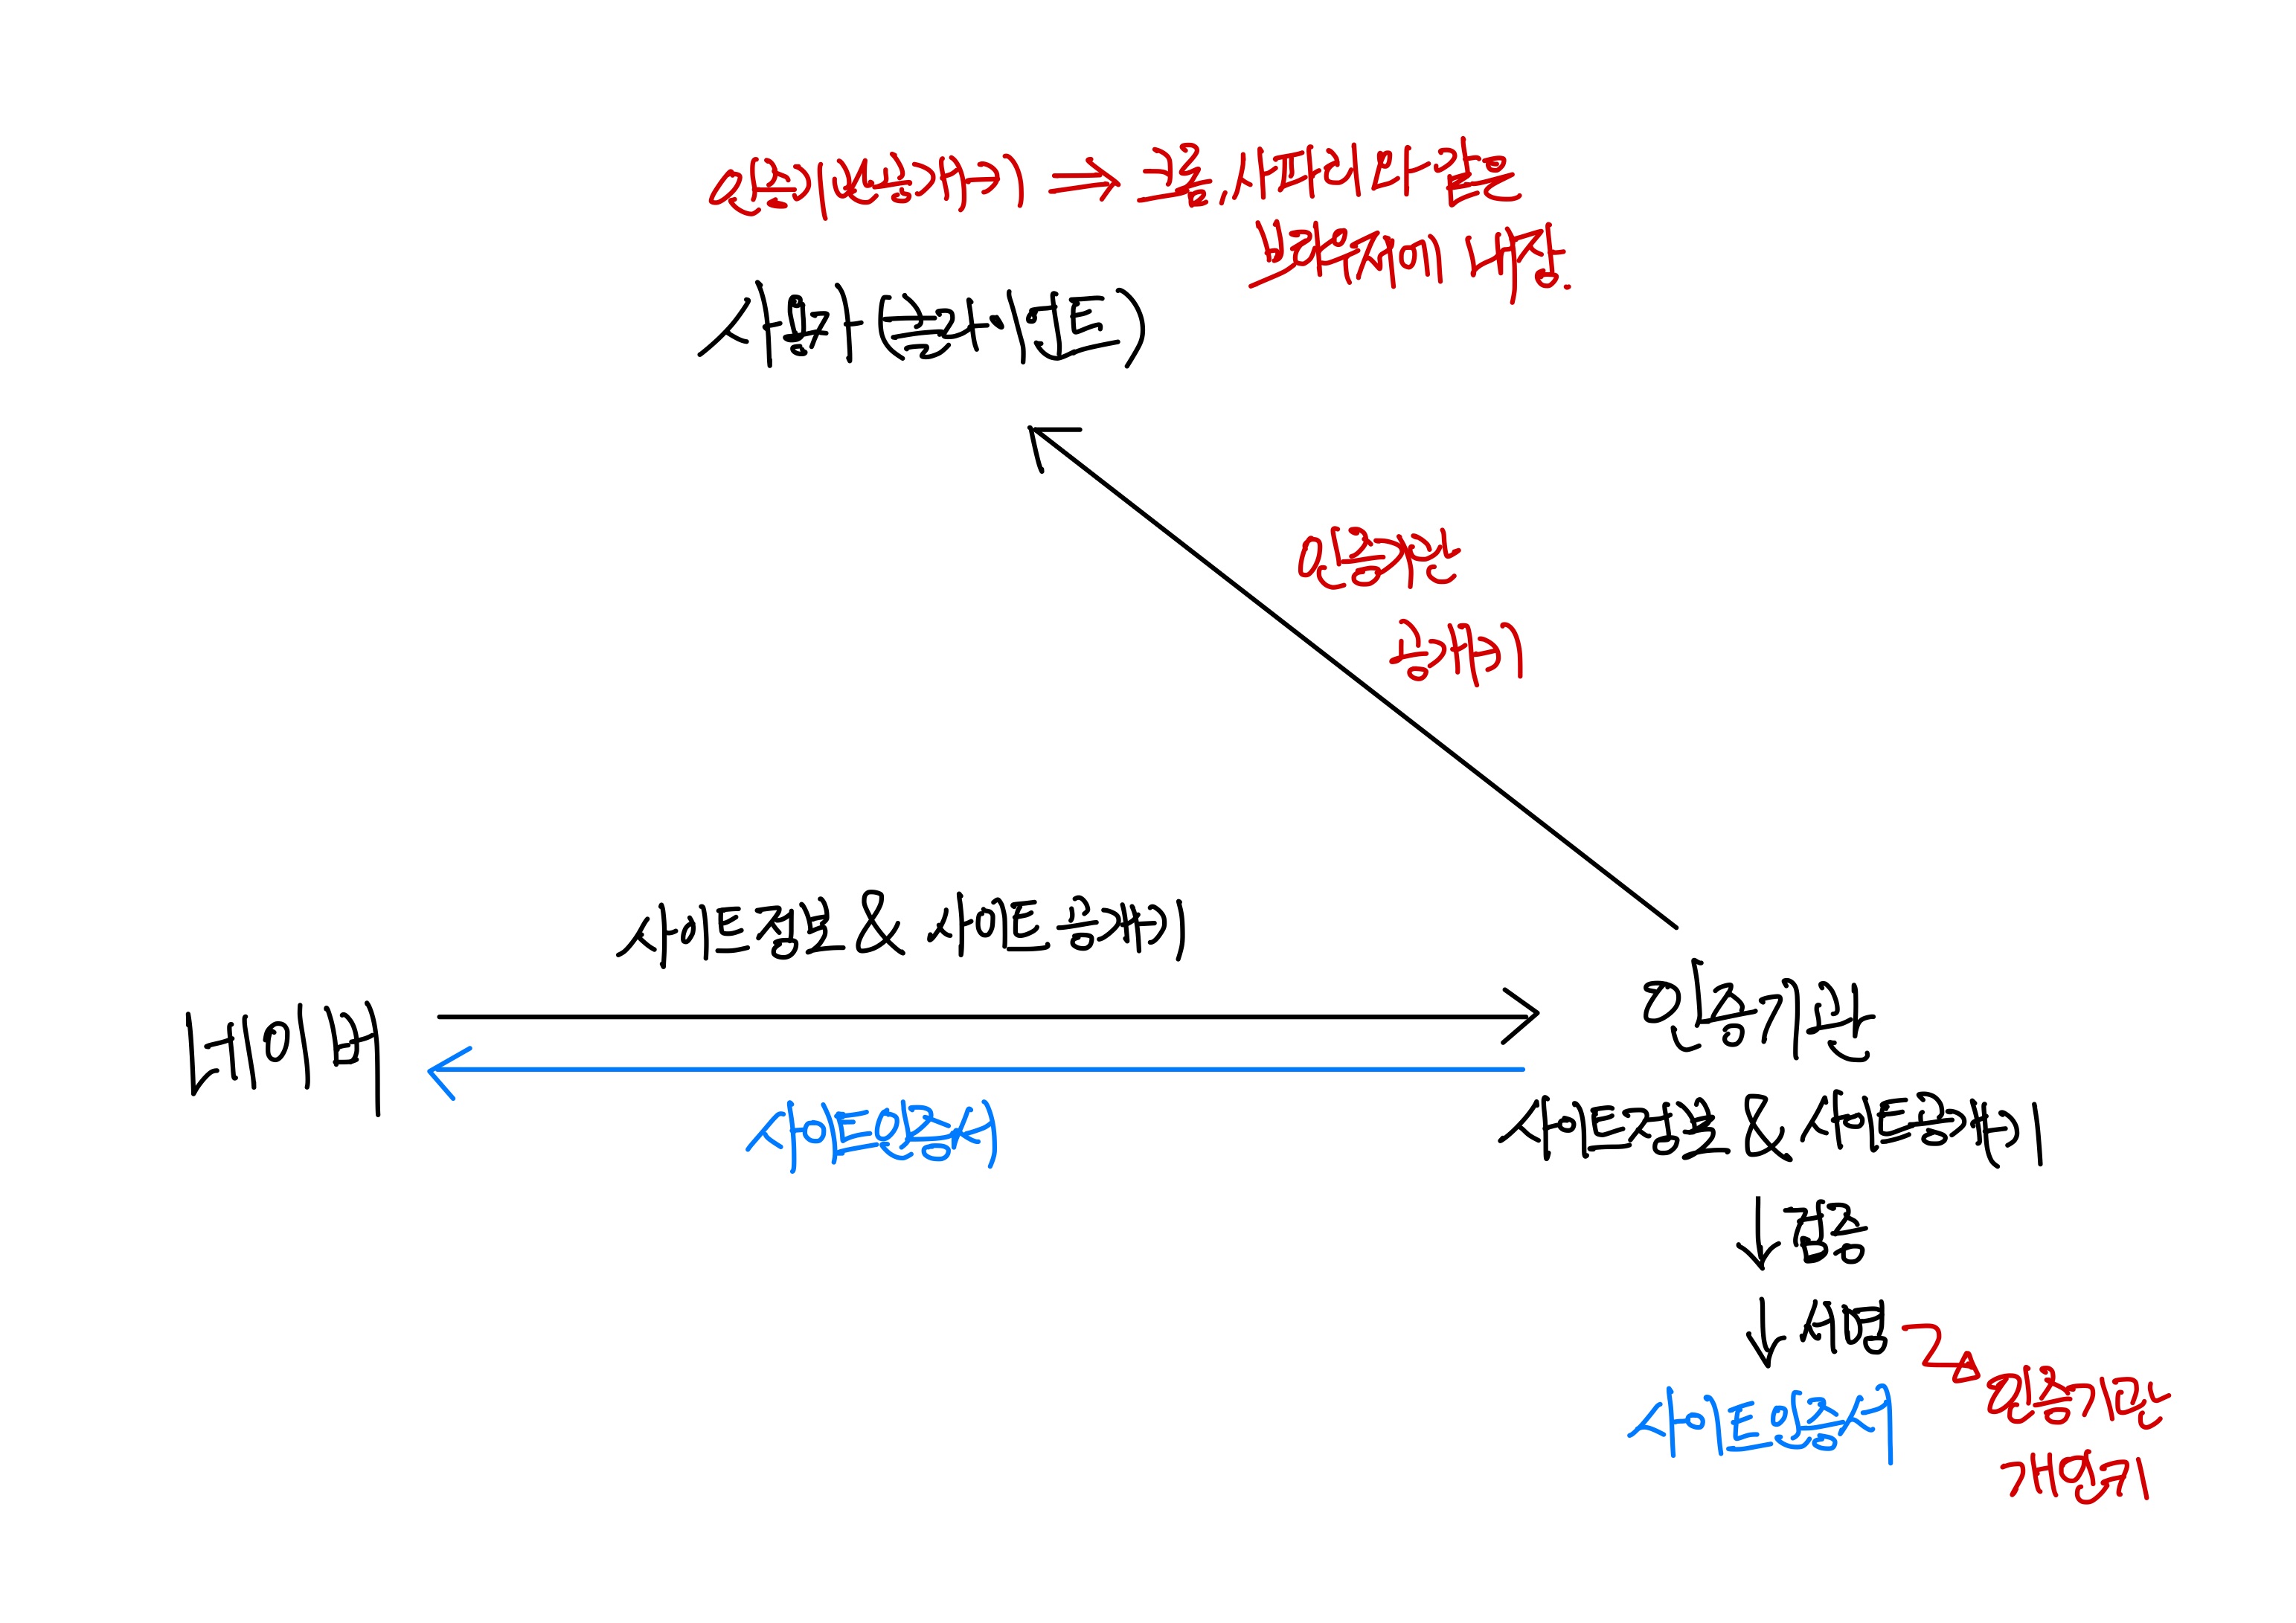 인증기관 공개키 → 크롬, 사파리 와 같은
브라우저에 내장.
사용자 (클라이언트)
인증기관
공개키
사이트 정보 & 사이트 공개키
네이버
인증기관
사이트 인증서
사이트 정보 & 사이트 공개키
↓ 검증
↓ 서명
인증기관
개인키
사이트 인증서